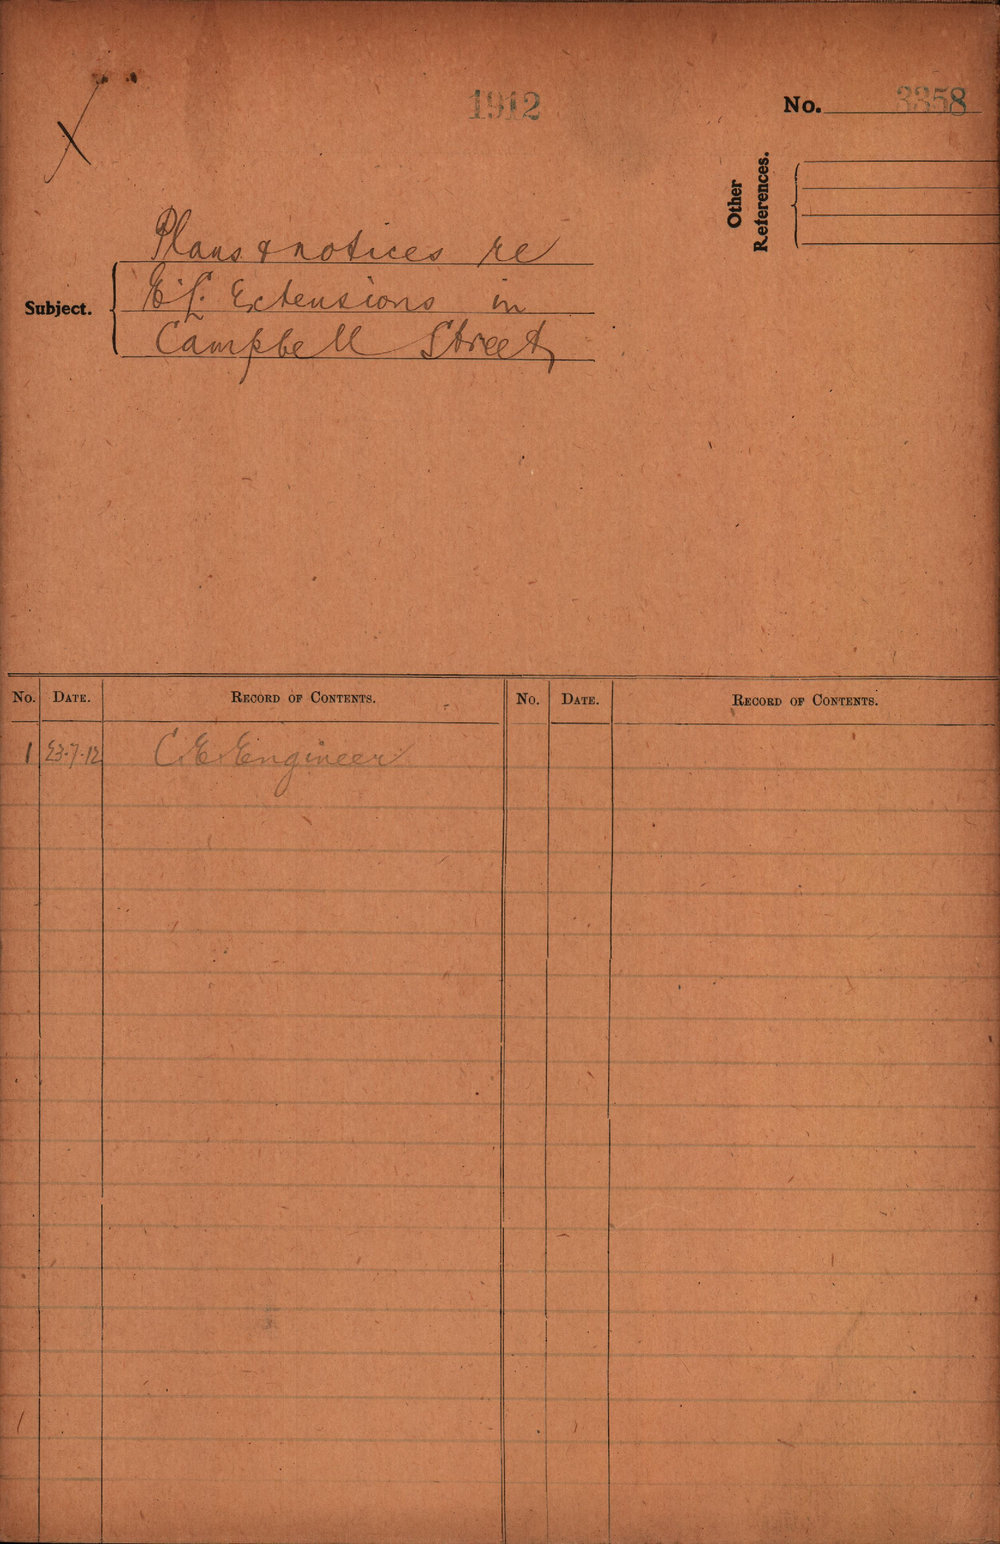 1912
No. 3358
Other
References.
Subject.
Plans & notices re
E.L. Extensions in
Campbell Street
No. DATE. RECORD OF CONTENTS. No. DATE. RECORD OF CONTENTS.
1 23.7.12 C.E. Engineer